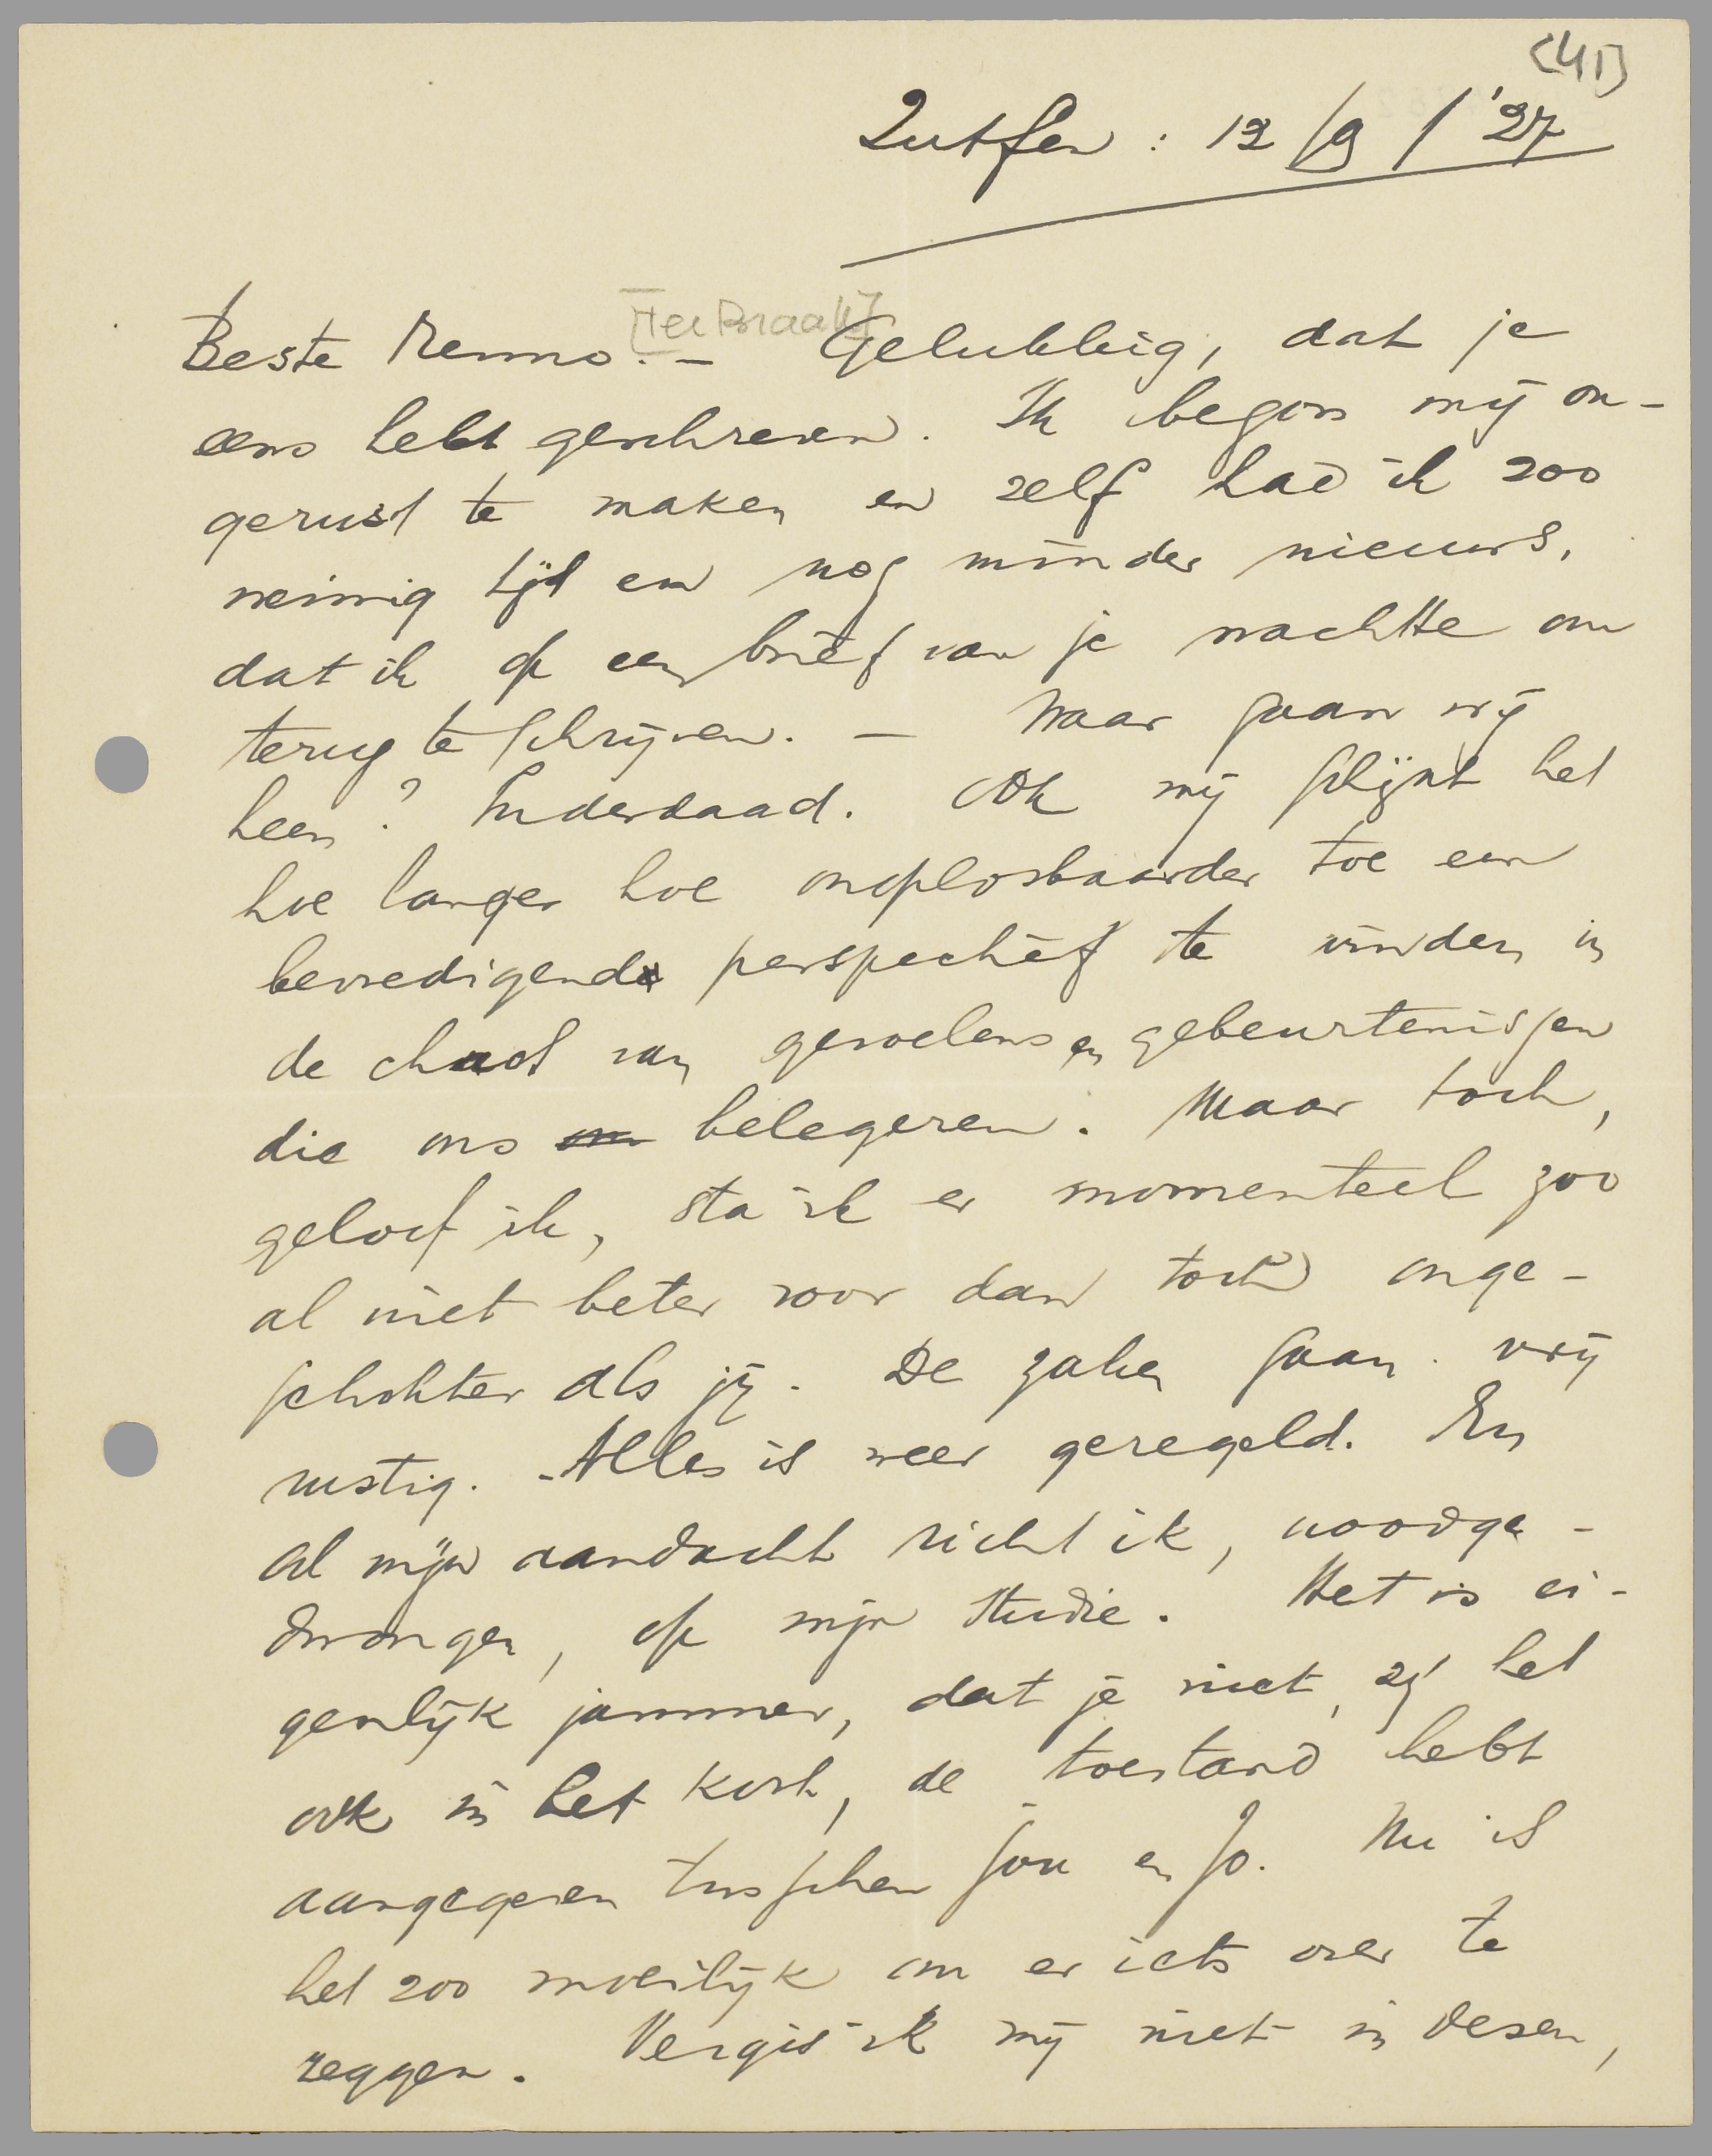 (41)
Zutfen : 12/9/'27
[Ter Braak]
Beste Menno. – Gelukkig, dat je
eens hebt geschreven. Ik begon mij on-
gerust te maken en zelf had ik zoo
weinig tijd en nog minder nieuws,
dat ik op een brief van je wachtte om
terug te schrijven. – Waar gaan wij
heen? Inderdaad. Ook mij schijnt het
hoe langer hoe onoplosbaarder toe een
bevredigend perspectief te vinden in
de chaos van gevoelens en gebeurtenissen
die ons om belegeren. Maar toch,
geloof ik, sta ik er momenteel zoo
al niet beter voor dan toch onge-
schokter als jij. De zaken gaan vrij
rustig. Alles is weer geregeld. En
al mijn aandacht richt ik, noodge-
drongen, op mijn studie. Het is ei-
genlijk jammer, dat je niet, zij het
ook in het kort, de toestand hebt
aangegeven tusschen jou en Jo. Nu is
het zoo moeilijk om er iets over te
zeggen. Vergis ik mij niet in dezen,